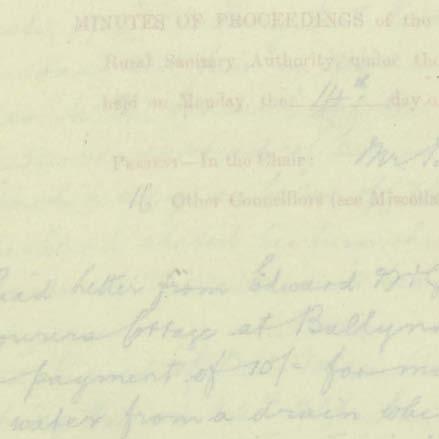 MINUTES OF PROCEEDINGS of the
Rural Sanitary Authority, under the
held on Monday, the 14th day o
PRESENT—In the Chair: Mr
16 Other Councillors (see Miscella
ead letter from Edward
ourers Cottage at Ballyn
payment of 10/- for
water from a drain whi